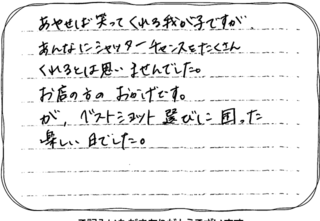 あやせば笑ってくれる我が子ですが、
あんなにシャッターチャンスをたくさん
くれるとは思いませんでした。
お店の方のおかげです。
が、ベストショット選びに困った
楽しい日でした。